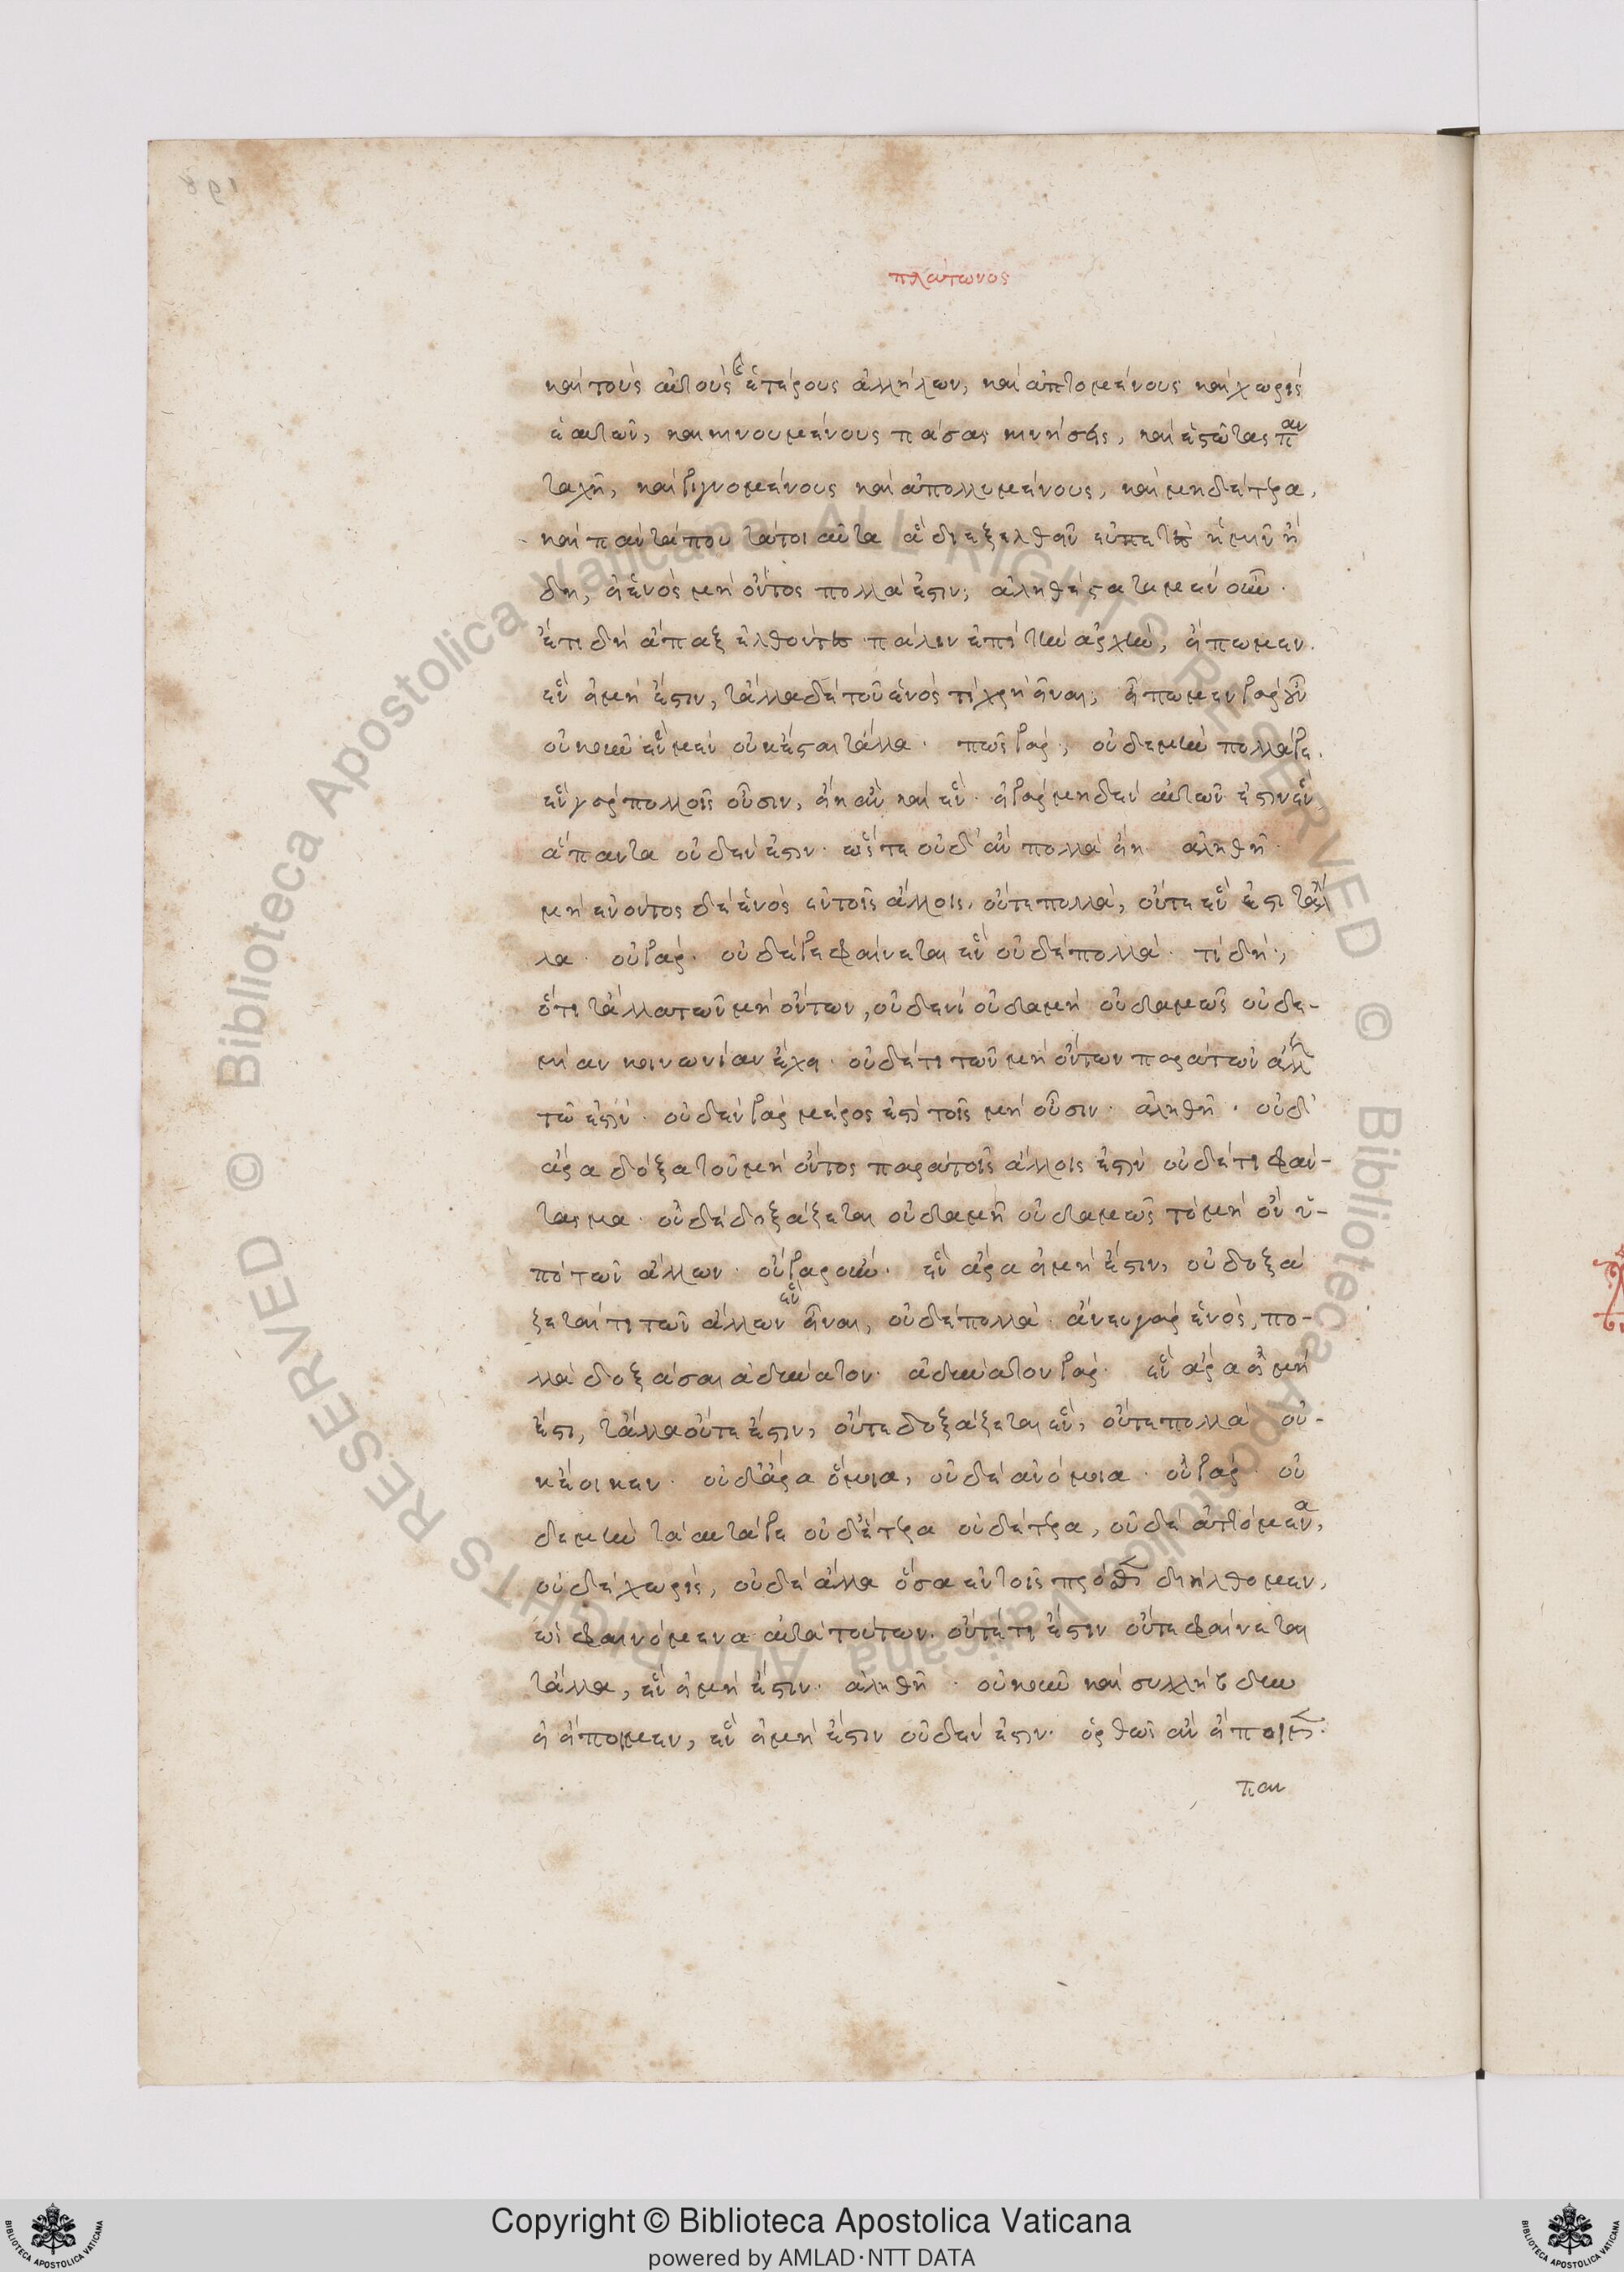 πλάτωνος
καὶ τοὺς αὐτοὺς καὶ ἑτέρους ἀλλήλων, καὶ ἁπτομένους καὶ χωρὶς
ἑαυτῶν, καὶ κινουμένους πάσας κινήσεις, καὶ ἑστῶτας παν
ταχῆ, καὶ γιγνομένους καὶ ἀπολλυμένους, καὶ μηδέτερα,
καὶ πάντα που τὰ τοιαῦτα ἃ διεξελθεῖν εὐπετὲς ἡμῖν ἤ
δη, εἰ ἑνὸς μὴ ὄντος πολλὰ ἔστιν; ἀληθέστατα μὲν οὖν.
ἔτι δὴ ἅπαξ ἐλθόντες πάλιν ἐπὶ τὴν ἀρχὴν, εἴπωμεν.
ἓν εἰ μὴ ἔστιν, τἄλλα δὲ τοῦ ἑνὸς τί χρὴ εἶναι; εἴπωμεν γὰρ οὖν
οὐκοῦν ἓν μὲν οὐκ ἔσται τἄλλα. πῶς γάρ; οὐδὲ μὴν πολλά γε.
ἐν γὰρ πολλοῖς οὖσιν, ἐνείη ἂν καὶ ἕν. εἰ γὰρ μηδὲν αὐτῶν ἐστιν ἓν,
ἅπαντα οὐδέν ἐστιν. ὥστε οὐδ' ἂν πολλὰ εἴη ἀληθῆ.
μὴ ἐνόντος δὲ ἑνὸς ἐν τοῖς ἄλλοις, οὔτε πολλὰ, οὔτε ἕν ἐστι τἄλ
λα. οὐ γάρ. οὐδέ γε φαίνεται ἓν οὐδὲ πολλά. τί δή;
ὅτι τἄλλα τῶν μὴ ὄντων, οὐδενὶ οὐδαμῆ οὐδαμῶς οὐδε-
μίαν κοινωνίαν ἔχει. οὐδέ τι τῶν μὴ ὄντων παρὰ τῶν ἄλλων
τῷ ἐστίν. οὐδὲν γὰρ μέρος ἐστὶ τοῖς μὴ οὖσιν. ἀληθῆ. οὐδ'
ἄρα δόξα τοῦ μὴ ὄντος παρὰ τοῖς ἄλλοις ἐστὶν οὐδέ τι φάν-
τασμα. οὐδὲ δοξάζεται οὐδαμῆ οὐδαμῶς τὸ μὴ ὂν ὑ-
πὸ τῶν ἄλλων. οὐ γὰρ οὖν. ἓν ἄρα εἰ μὴ ἔστιν, οὐ δοξά
ζεταί τι τῶν ἄλλων ἓν εἶναι, οὐδὲ πολλά. ἄνευ γὰρ ἑνὸς, πο-
λλὰ δοξάσαι ἀδύνατον. ἀδύνατον γάρ. ἓν ἄρα εἰ μὴ
ἔστι, τἄλλα οὔτε ἔστιν, οὔτε δοξάζεται ἓν, οὔτε πολλά οὐ-
κ ἔοικεν. οὐδ' ἄρα ὅμοια, οὐδὲ ἀνόμοια. οὐ γάρ. οὐ
δὲ μὴν τὰ αὐτά γε οὐδ' ἕτερα οὐδέτερα, οὐδὲ ἁπτόμενα,
οὐδὲ χωρὶς, οὐδὲ ἄλλα ὅσα ἐν τοῖς πρόσθεν διήλθομεν,
ὡς φαινόμενα αὐτὰ τούτων. οὔτέ τι ἔστιν οὔτε φαίνεται
τἄλλα, ἓν εἰ μὴ ἔστιν. ἀληθῆ. οὐκοῦν καὶ συλλήβδην
εἰ εἴποιμεν, ἓν εἰ μὴ ἔστιν οὐδέν ἐστιν. ὀρθῶς ἂν εἴποιμεν.
παν
Copyright © Biblioteca Apostolica Vaticana
powered by AMLAD·NTT DATA
© Biblioteca Apostolica Vaticana ALL RIGHTS RESERVED © Biblioteca Apostolica Vaticana ALL RIGHTS RESERVED